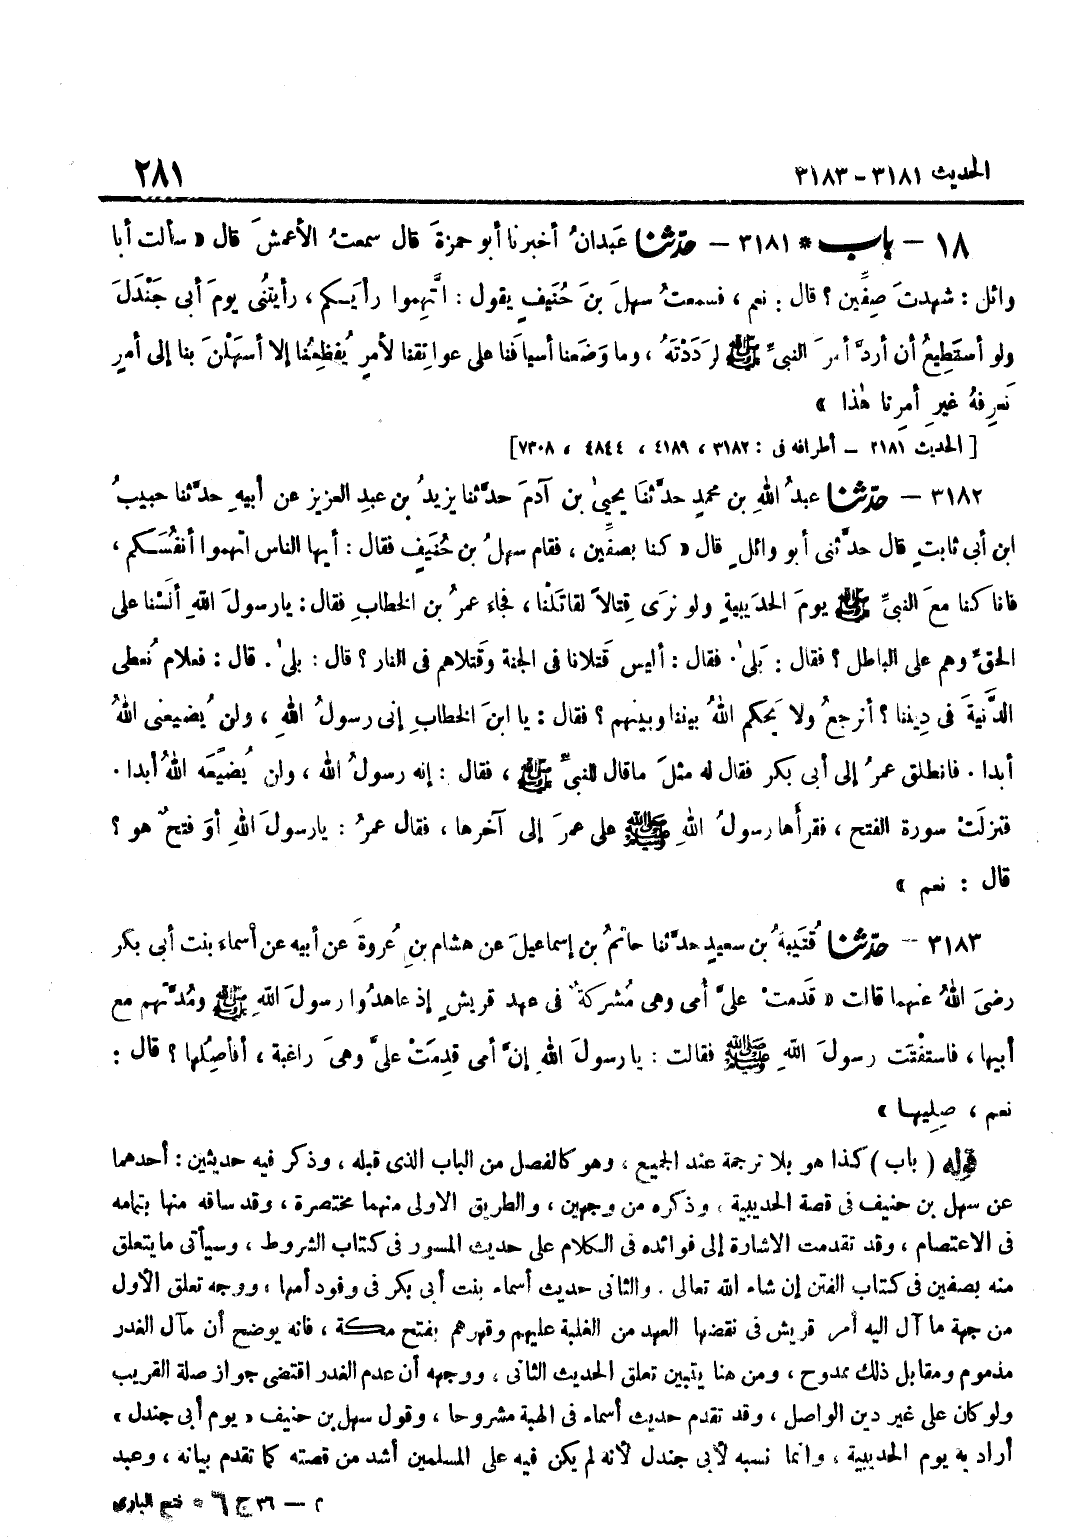 الحديث ٣١٨١ - ٣١٨٣ ٢٨١
١٨ - باب * ٣١٨١ - حدّثنا عَبدانُ أخبرنا أبو حمزةَ قال سمعتُ الأعمشَ قال « سألت أبا
وائل : شهدتَ صِفِّين ؟ قال : نعم ، فسمعتُ سهلَ بنَ حُنَيفٍ يقول : اتَّهِموا رأيَكم ، رأيتُنى يومَ أبى جَنْدَلَ
ولو أستَطِيعُ أن أردَّ أمرَ النبىِّ ﷺ لرَدَدْتَهُ ، وما وَضَعنا أسيافَنا على عواتِقنا لأمرٍ يُفظِعُنا إلا أسهَلْنَ بنا إلى أمرٍ
نَعرِفهُ غيرِ أمرِنا هٰذا »
[ الحديث ٢١٨١ - أطرافه فى : ٣١٨٢ ، ٤١٨٩ ، ٤٨٤٤ ، ٧٣٠٨]
٣١٨٢ - حدّثنا عبدُ اللهِ بن محمدٍ حدَّثنا يحيىٰ بن آدمَ حدَّثنا يزيدُ بن عبدِ العزيز عن أبيهِ حدَّثنا حبيبُ
ابن أبى ثابتٍ قال حدَّثنى أبو وائلٍ قال « كنا بصفِّين ، فقام سهلُ بن حُنَيفٍ فقال : أيها الناس اتهموا أنفُسَكم ،
فانا كنا معَ النبىِّ ﷺ يومَ الحدَيبيةِ ولو نرَى قِتالاً لقاتَلْنا ، فجاء عمرُ بن الخطابِ فقال : يا رسولَ اللهِ ألَسْنا على
الحقِّ وهم على الباطل ؟ فقال : بَلىٰ . فقال : أليس قَتلانا فى الجنة وقَتلاهم فى النار ؟ قال : بلىٰ . قال : فعلام نُعطى
الدَّنيةَ فى دِيننا ؟ أنرجعُ ولا يَحكم اللهُ بيننا وبينهم ؟ فقال : يا ابنَ الخطابِ إنى رسولُ اللهِ ، ولن يُضيعنى اللهُ
أبدا . فانطلق عمرُ إلى أبى بكر فقال له مثلَ ماقال للنبىِّ ﷺ ، فقال : إنه رسولُ الله ، ولن يُضيِّعَه اللهُ أبدا .
فنزلَتْ سورة الفتح ، فقرأها رسولُ اللهِ ﷺ على عمرَ إلى آخرها ، فقال عمرُ : يارسولَ اللهِ أوَ فتحٌ هو ؟
قال : نعم »
٣١٨٣ - حدّثنا قُتَيبةُ بن سعيدٍ حدَّثنا حاتمُ بن إسماعيلَ عن هشام بنِ عُروةَ عن أبيه عن أسماءَ بنت أبى بكر
رضىَ اللهُ عنهما قالت « قَدمتْ علىَّ أُمى وهى مُشركةٌ فى عهد قريشٍ إذ عاهدُوا رسولَ اللهِ ﷺ ومُدَّتهم مع
أبيها ، فاستفْتَت رسولَ اللهِ ﷺ فقالت : يا رسولَ اللهِ إنَّ أمى قدِمَتْ علىَّ وهىَ راغبة ، أفأصِلُها ؟ قال :
نعم ، صِلِيها »
قوله ( باب ) كذا هو بلا ترجمة عند الجميع ، وهو كالفصل من الباب الذى قبله ، وذكر فيه حديثين : أحدهما
عن سهل بن حنيف فى قصة الحديبية ، وذكره من وجهين ، والطريق الاولى منهما مختصرة ، وقد ساقه منها بتمامه
فى الاعتصام ، وقد تقدمت الاشارة إلى فوائده فى الكلام على حديث المسور فى كتاب الشروط ، وسيأتى ما يتعلق
منه بصفين فى كتاب الفتن إن شاء الله تعالى . والثانى حديث أسماء بنت أبى بكر فى وفود أمها ، ووجه تعلق الأول
من جهة ما آل اليه أمر قريش فى نقضها العهد من الغلبة عليهم وقهرهم بفتح مكة ، فانه يوضح أن مآل الغدر
مذموم ومقابل ذلك ممدوح ، ومن هنا يتبين تعلق الحديث الثانى ، ووجهه أن عدم الغدر اقتضى جواز صلة القريب
ولو كان على غير دين الواصل ، وقد تقدم حديث أسماء فى الهبة مشروحا ، وقول سهل بن حنيف « يوم أبى جندل »
أراد به يوم الحديبية ، وانما نسبه لأبى جندل لأنه لم يكن فيه على المسلمين أشد من قصته كما تقدم بيانه ، وعبد
م - ٣٦ ج ٦ * فتح البارى